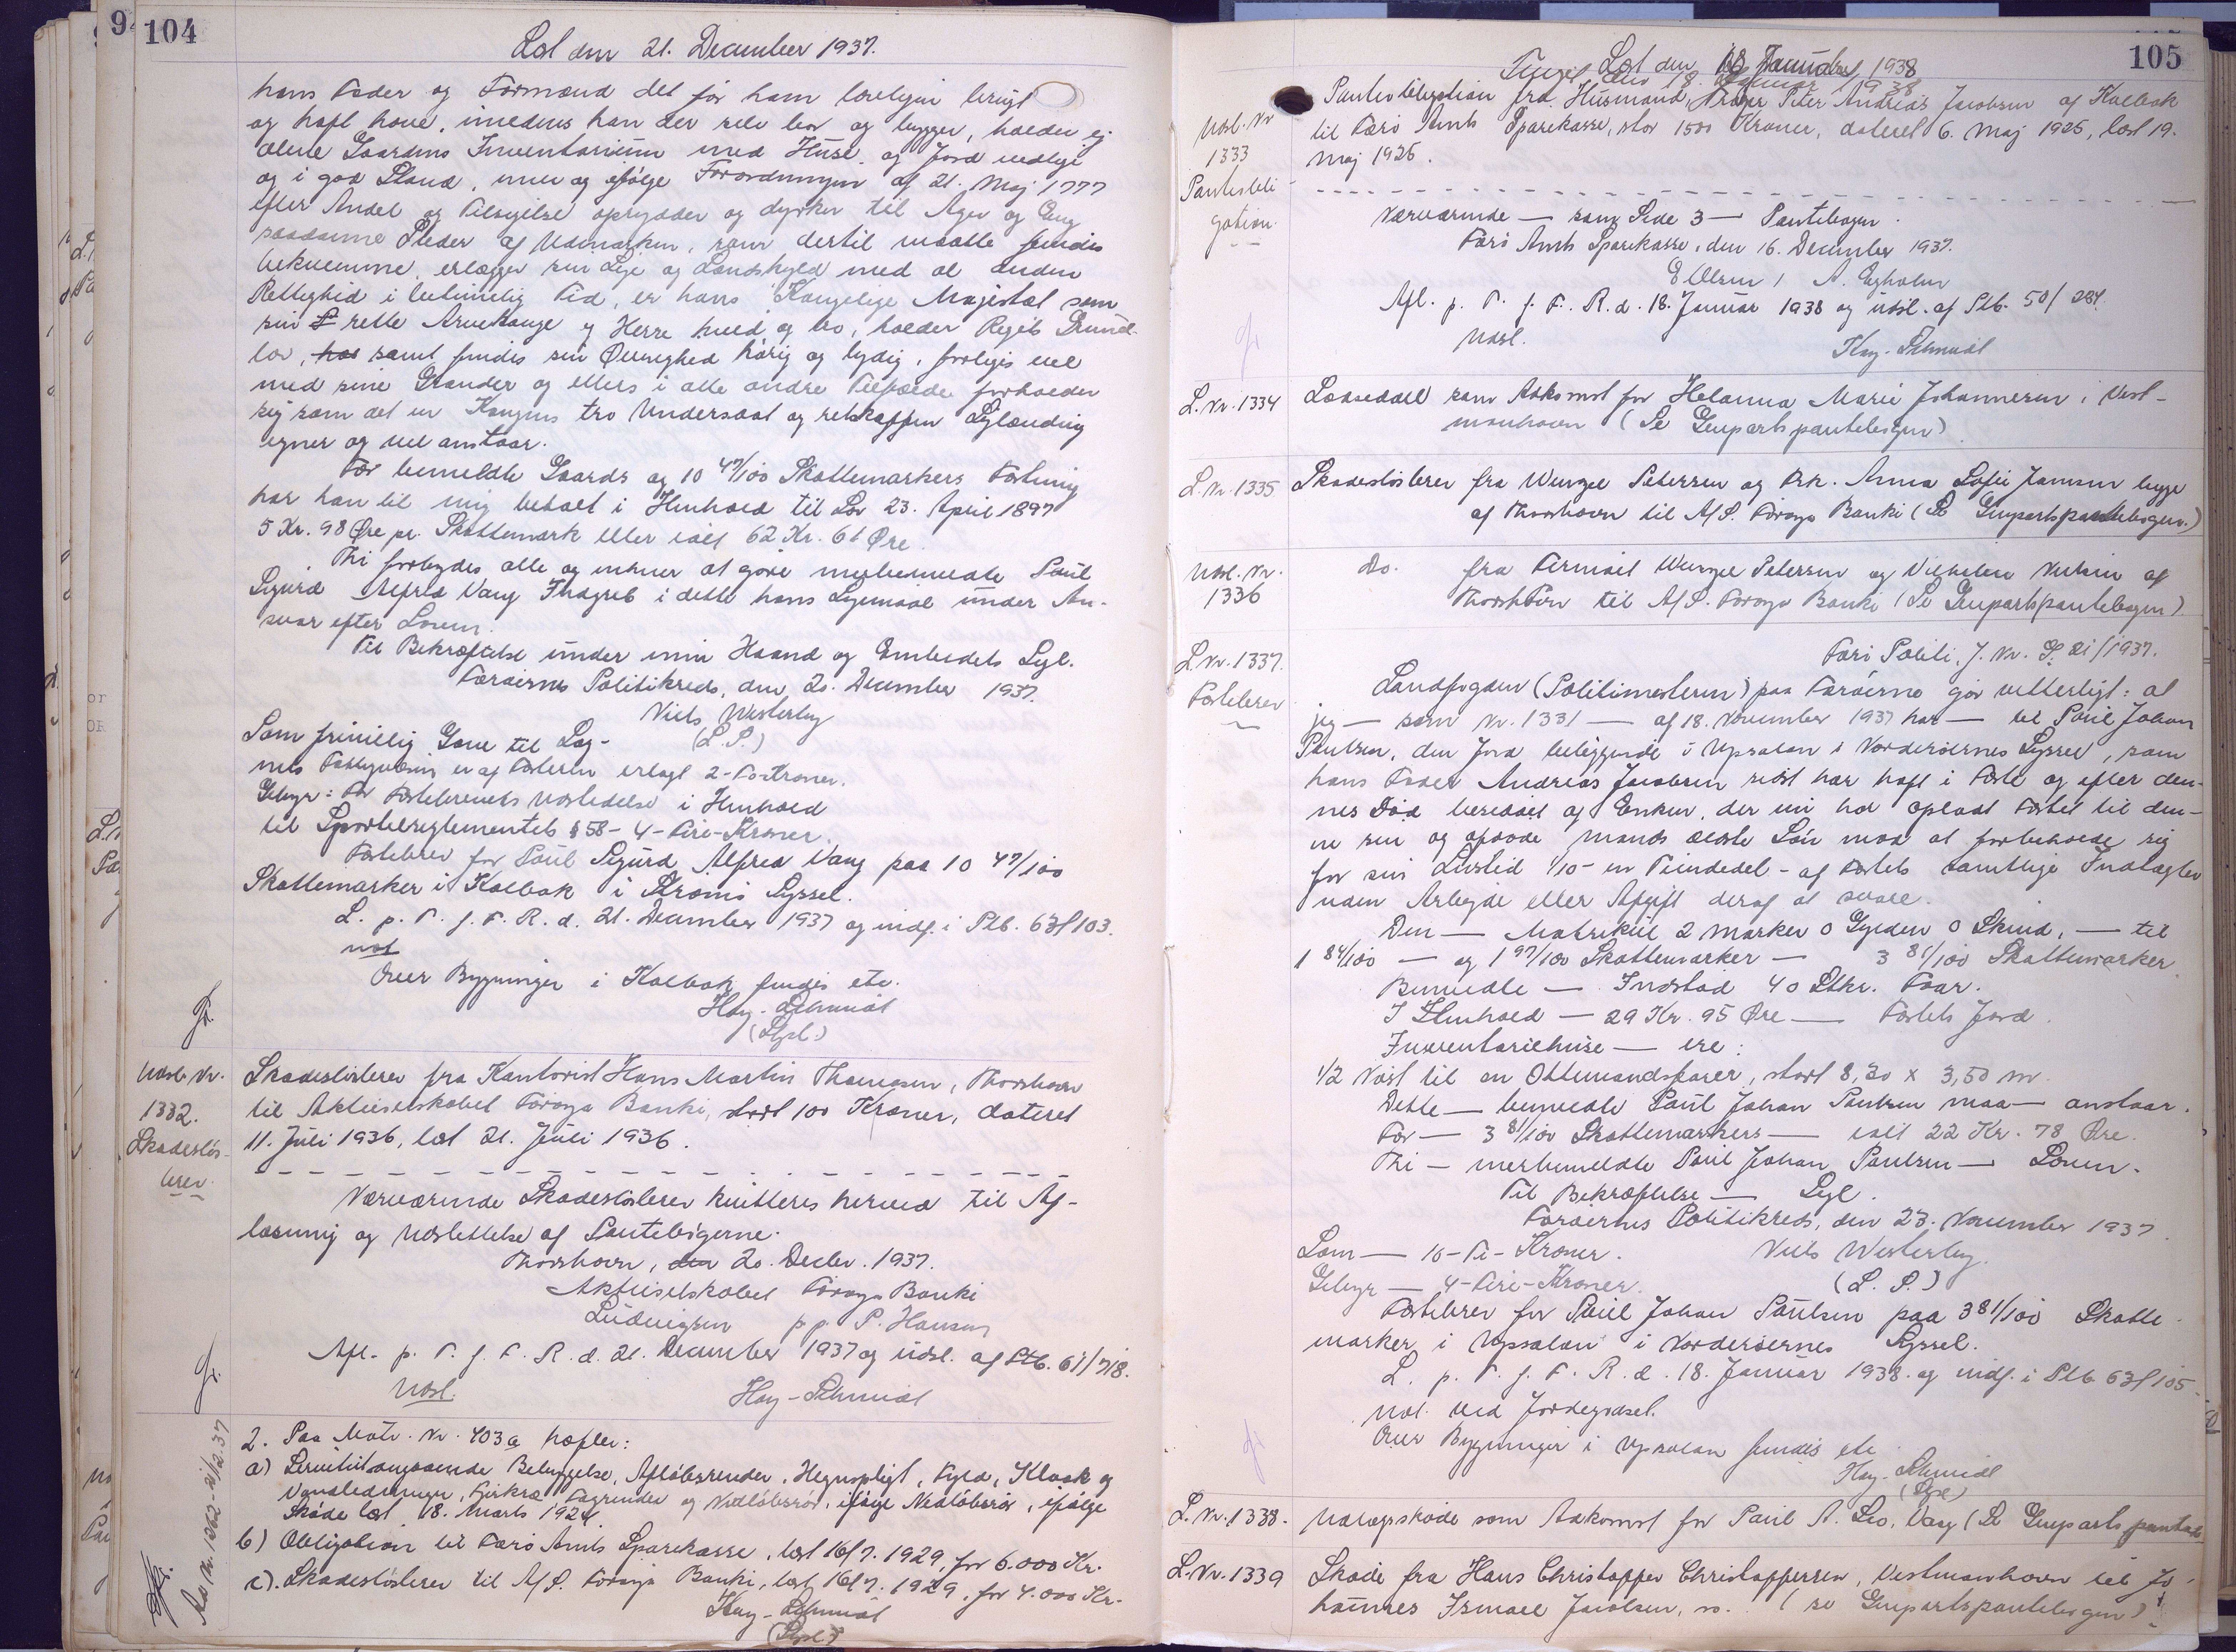 104
Læst den 21. December 1937.
hans Fader og Formænd det før ham lovligen brugt
og haft have, imedens han der selv bor og bygger, holder ej
alene Gaardens Inventarium med Huse og Jord vedlige
og i god Stand, men og ifølge Forordningen af 21. Maj 1777
efter Andel og Tilsigelse oprydder og dyrker til Ager og Eng
saadanne Steder af Udmarken, som dertil maatte findes
bekvemme, erlægger sin Leje og Landskyld med al anden
Rettighed i betimelig Tid, er hans Kongelige Majestæt som
sin rette Arvekonge og Herre huld og tro, holder Rigets Grund-
lov, samt findes sin Øvrighed hørig og lydig, forliges vel
med sine Grander og ellers i alle andre Tilfælde forholder
sig som det en Kongens tro Undersaat og retskaffen
egner og vel anstaar.
For bemeldte Gaards og 10 47/100 Skattemarkers Fæstning
har han til mig betalt i Henhold til Lov 23. April 1897
5 Kr. 98 Øre pr. Skattemark eller ialt 62 Kr. 61 Øre.
Thi forbydes alle og enhver at gøre merbemeldte Poul
Sigurd Alfred Vang Indgreb i dette hans Lejemaal under An-
svar efter Loven.
Til Bekræftelse under min Haand og Embedets Segl.
Færøernes Politikreds, den 20. December 1937.
Niels Westerby
(L.S.)
Som frivillig Gave til Læg-
nets Fattigvæsen er af Fæsteren erlagt 2-To Kroner.
Gebyr: For Fæstebrevets Udstedelse i Henhold
til Sportelreglementets § 58 - 4 - Fire - Kroner.
Fæstebrev for Poul Sigurd Alfred Vang paa 10 47/100
Skattemarker i Kolbak i Strømø Syssel.
L. p. T. f. F. R. d. 21. December 1937 og indf. i Ptb. 63 f 103.
not
Over Bygninger i Kolbak findes etc.
Hay-Schmidt
(Sgl.)
Udsl. Nr.
1332.
Skadesløs-
brev.
Skadesløsbrev fra Kontorist Hans Martin Thomsen, Thorshavn
til Aktieselskabet Føroya Banki, stort 100 Kroner, dateret
11. Juli 1936, læst 21. Juli 1936.
Nærværende Skadesløsbrev kvitteres herved til Af-
læsning og Udslettelse af Pantebøgerne.
Thorshavn, den 20. Decbr. 1937.
Aktieselskabet Føroya Banki
Ludvigsen pp. P. Hansen
Afl. p. T. f. F. R. d. 21. December 1937 og udsl. af Ptb. 61/718.
Udsl.
Hay-Schmidt
2. Paa Matr. Nr. 403a hæfter:
a) Servitut angaaende Bebyggelse, Afløbsrender, Hegnspligt, Fyld, Kloak og
Vandledninger, Tagrender og Nedløbsrør, ifølge Nedløbsrør, ifølge
Skøde læst 18. Marts 1924
b) Obligation til Færø Amts Sparekasse, læst 16/7. 1929, for 6.000 Kr.
c). Skadesløsbrev til A/S. Føroya Banki, læst 16/7. 1929, for 4.000 Kr.
Hay-Schmidt
(Sgl.)
105
Læst den 18. Januar 1938
Udsl. Nr
1333
Panteobli-
gation.
Panteobligation fra Husmand, Peter Andreas Jacobsen af Kolbak
til Færø Amts Sparekasse, stor 1500 Kroner, dateret 6. Maj 1925, læst 19.
Maj 1925.
Nærværende — som Side 3 — Pantebogen.
Færø Amts Sparekasse, den 16. December 1937.
E Olsen / A. Egholm
Afl. p. T. f. F. R. d. 18. Januar 1938 og udsl. af Ptb. 50/284.
Udsl.
Hay-Schmidt
L. Nr. 1334
Lavsedddel som Adkomst for Helanna Marie Johannesen i Vest-
manhavn (Se Genpartspantebogen)
L. Nr. 1335
Skadesløsbrev fra Wenzel Petersen og Frk. Anna Sofie Jansen begge
af Thorshavn til A/S. Føroya Banki (Se Genpartspantebogen.)
Udsl. Nr.
1336
do. fra Firmaet Wenzel Petersen og af
Thorshavn til A/S. Føroya Banki (Se Genpartspantebogen)
L. Nr. 1337.
Fæstebrev
Færø Politi, J. Nr. G. 21/1937.
Landfogden (Politimesteren) paa Færøerne gør vitterligt: at
jeg — som Nr. 1331 — af 18. November 1937 har — til Poul Johan
Poulsen, den Jord beliggende i Upsalan i Norderøernes Syssel, som
hans Fader Andreas Jacobsen sidst har haft i Fæste og efter den-
nes Død besiddet af Enken, der nu har opladt Fæstet til den-
ne sin og afdøde Mands ældste Søn mod at forbeholde sig
for sin Livstid 1/10 - en Tiendedel - af Fæstets samtlige Indtægter
uden Arbejde eller Afgift deraf at svare.
Den — Matrikul 2 Marker 0 Gylden 0 Skind, — til
1 84/100 — og 1 97/100 Skattemarker — 3 81/100 Skattemarker
Bemeldte — Indstød 40 Stkr. Faar.
I Henhold — 29 Kr. 95 Øre — Fæstets Jord.
Inventariehuse — ere:
1/2 Nøst til en Ottemandsfarer, stort 8,20 x 3,50 m.
Dette — bemeldte Poul Johan Poulsen maa — anstaar.
For — 3 81/100 Skattemarkers — ialt 22 Kr. 78 Øre.
Thi — merbemeldte Poul Johan Poulsen — Loven.
Til Bekræftelse — Segl.
Færøernes Politikreds, den 23. November 1937
Som — 10 - Ti - Kroner.
Niels Westerby
Gebyr — 4 - Fire - Kroner.
(L. S.)
Fæstebrev for Poul Johan Poulsen paa 3 81/100 Skatte-
marker i Upsalan i Norderøernes Syssel.
L. p. T. f. F. R. d. 18. Januar 1938 og indf. i Ptb. 63 f 105.
not. ved Jordegodset.
Over Bygninger i Upsalan findes etc
Hay-Schmidt
(Sgl.)
L. Nr. 1338.
Udlægsskøde som Adkomst for Poul A. Leo, Vaag (Se Genparts
L. Nr. 1339
Skøde fra Hans Christoffer Christoffersen, Vestmanhavn til Jo-
hannes Ismael Jacobsen, (se Genpartspantebogen)